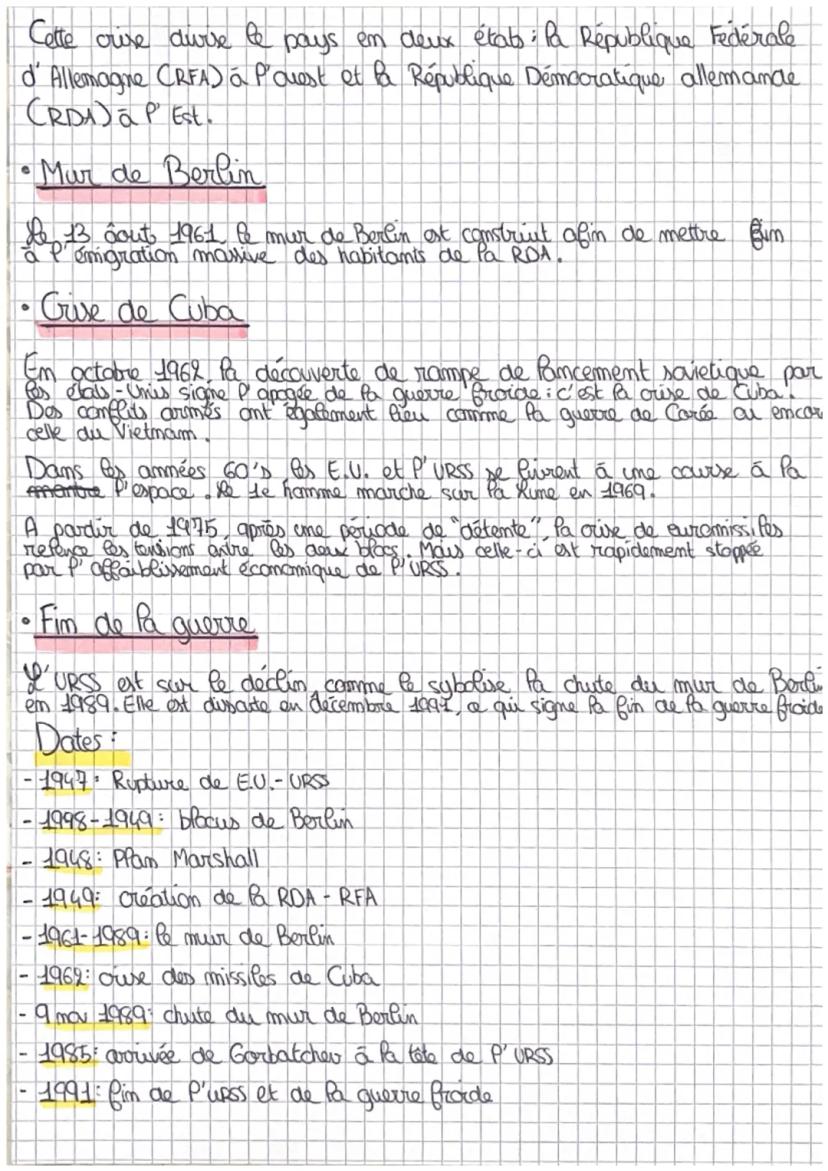 Cette crise divise le pays en deux états : la République Fédérale
d'Allemagne (RFA) à l'ouest et la République Démocratique allemande
(RDA) à l'Est.
• Mur de Berlin
Le 13 âout 1961, le mur de Berlin est construit afin de mettre fin
à l'émigration massive des habitants de la RDA.
• Crise de Cuba
En octobre 1962, la découverte de rampe de lancement soviétique par
les états-Unis signe l'apogée de la guerre froide : c'est la crise de Cuba.
Des conflits armés ont également lieu comme la guerre de Corée ou encor
celle du Vietnam.
Dans les années 60's les E.U. et l'URSS se livrent à une course à la
l'espace. Le 1e homme marche sur la Lune en 1969.
A partir de 1975, après une période de "détente", la crise de euromissiles
relance les tensions entre les deux blocs. Mais celle-ci est rapidement stoppée
par l'affaiblissement économique de l'URSS.
• Fin de la guerre
L'URSS est sur le déclin, comme le sybolise la chute du mur de Berli
en 1989. Elle est dissoute en décembre 1991, ce qui signe la fin de la guerre froide
Dates :
- 1947 : Rupture de E.U.-URSS
- 1998-1949 : blocus de Berlin
- 1948 : Plan Marshall
- 1949 : création de la RDA - RFA
- 1961-1989 : le mur de Berlin
- 1962 : crise des missiles de Cuba
- 9 nov 1989 : chute du mur de Berlin
- 1985 : arrivée de Gorbatchev à la tête de l'URSS
- 1991 : fin de l'URSS et de la guerre froide